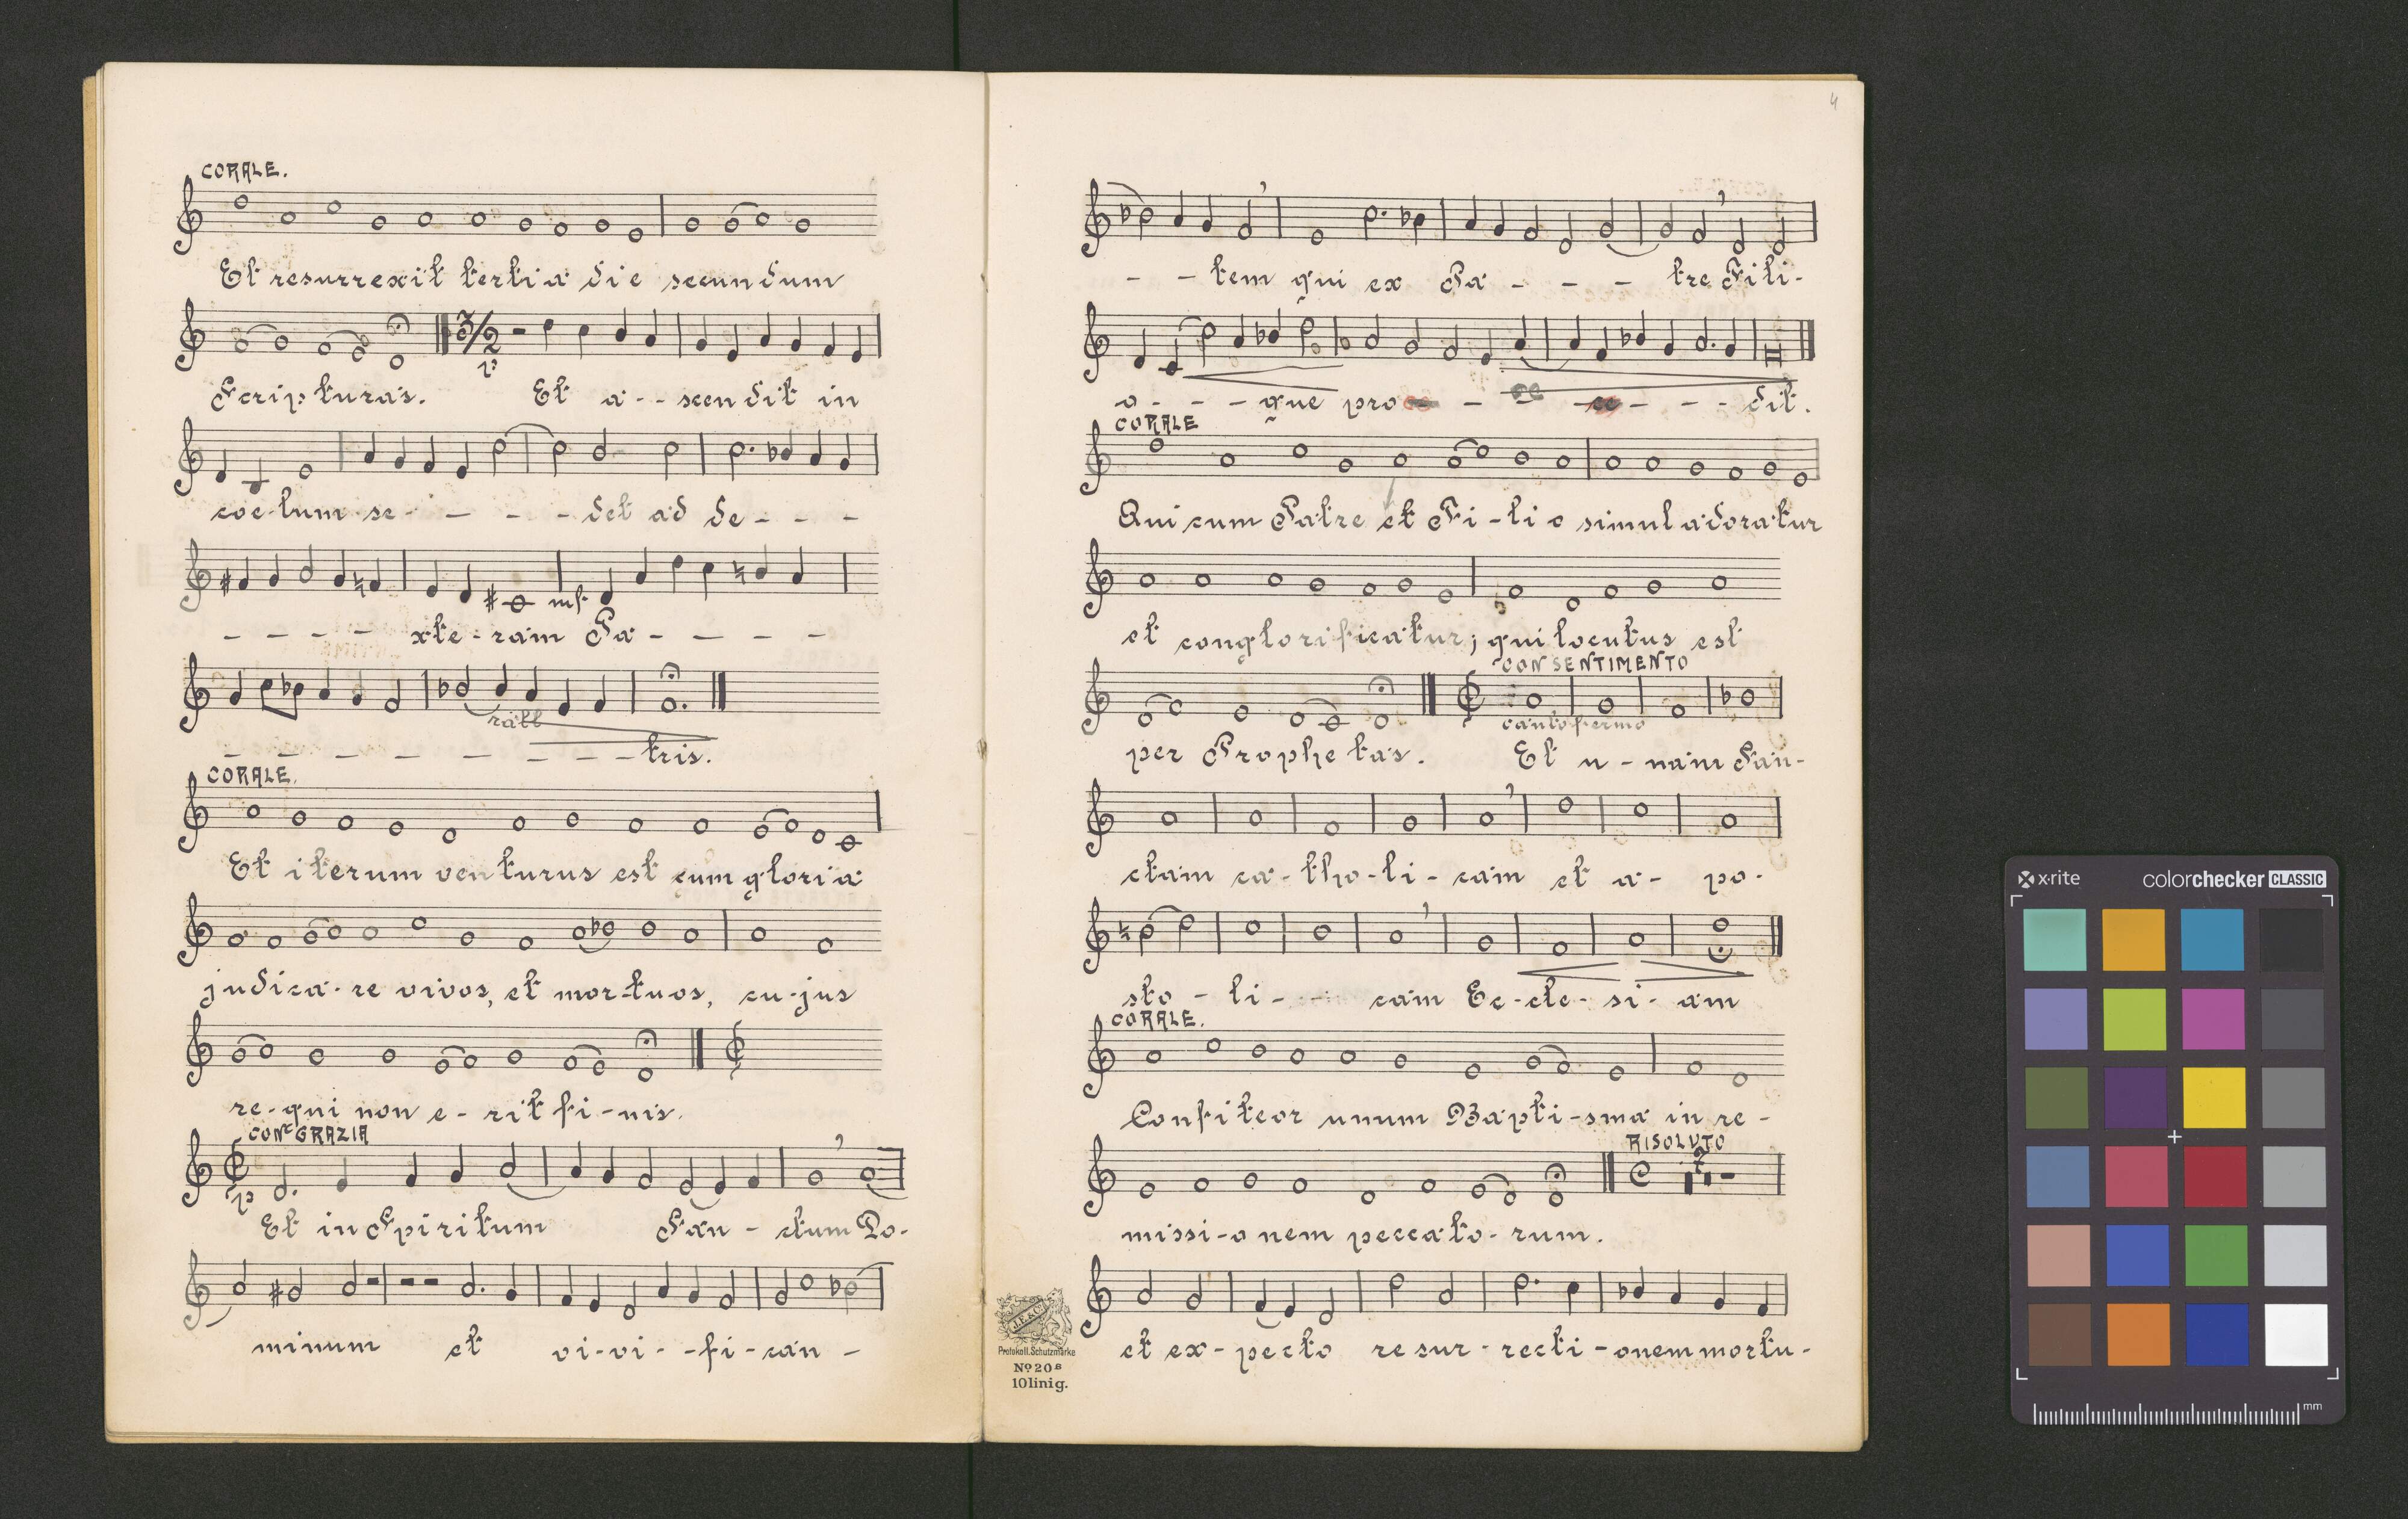 CORALE.
Et resurrexit tertia die secundum
Scripturas. Et a - - scendit in
coelum se - - - - - det ad de - - -
- - - - xte - ram Pa - - - -
mf.
rall
- - - - - - - - - tris.
CORALE.
Et iterum venturus est cum gloria
judica - re vivos, et mor - tuos, cu - jus
re - gni non e - rit fi - nis.
CON GRAZIA
p
Et in Spiritum San - ctum Do -
minum et vi - vi - - fi - can -
4
- - tem qui ex Pa - - - - tre Fili -
o - - - que pro - - ce - - - dit.
CORALE
Qui cum Patre et Fi - li o simul adoratur
et conglorificatur; qui locutus est
CON SENTIMENTO
canto fermo
per Prophetas. Et u - nam San -
ctam ca - tho - li - cam et a - po -
sto - li - cam Ec - cle - si - am
CORALE.
Confiteor unum Bapti - sma in re -
RISOLUTO
2
missi - o nem peccato - rum.
et ex - pecto re sur - recti - onem mortu -
J.E. & Co.
Protokoll. Schutzmarke
No 20 a
10linig.
x·rite
colorchecker CLASSIC
mm